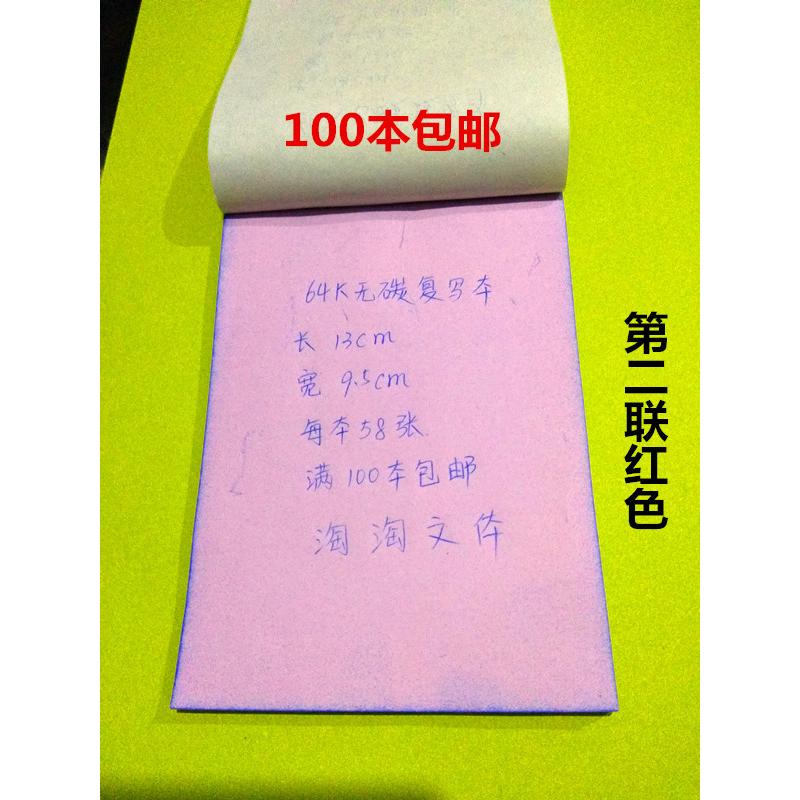 100本包邮
64K无碳复写本
长 13cm
宽 9.5cm
每本58张
满100本包邮
淘淘文体
第二联红色